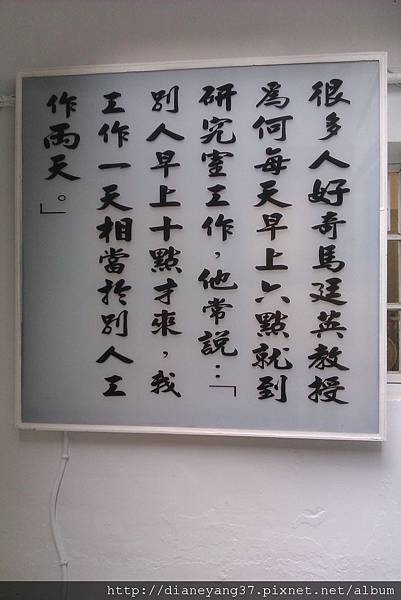 很多人好奇馬廷英教授
為何每天早上六點就到
研究室工作，他常說：「
別人早上十點才來，我
工作一天相當於別人工
作兩天。」
http://dianeyang37.pixnet.net/album